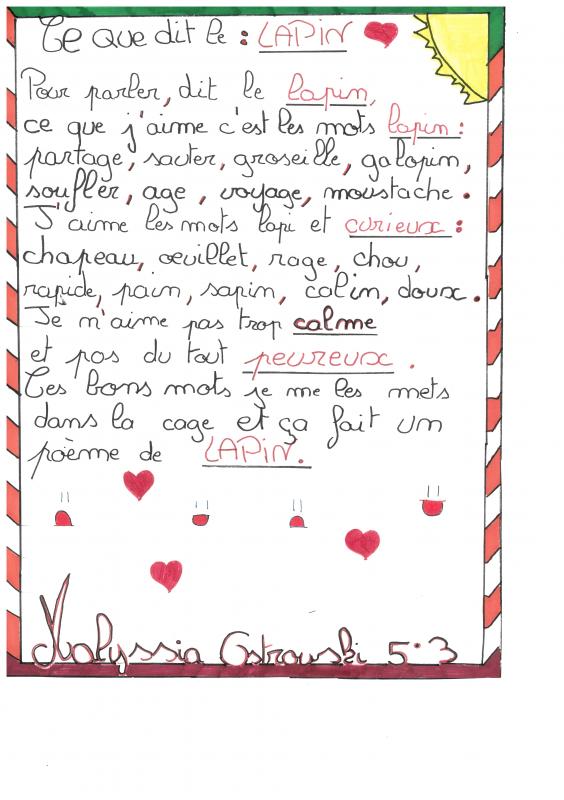 Ce que dit le : LAPIN
Pour parler, dit le lapin,
ce que j'aime c'est les mots lapin :
partage, sauter, groseille, galopin,
soufler, age, voyage, moustache.
J'aime les mots lapi et curieux :
chapeau, œuillet, rage, chou,
rapide, pain, sapin, calin, doux.
Je n'aime pas trop calme
et pas du tout peureux.
Ces bons mots je me les mets
dans la cage et ça fait un
poème de LAPIN.
Malyssia Ostrowski 5°3